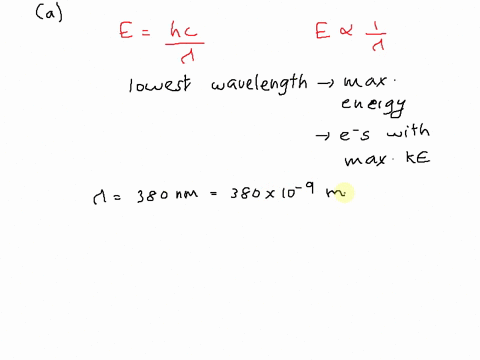 (a)
E = hc/λ E ∝ 1/λ
lowest wavelength → max.
energy
→ e⁻s with
max. KE
λ = 380 nm = 380 × 10⁻⁹ m